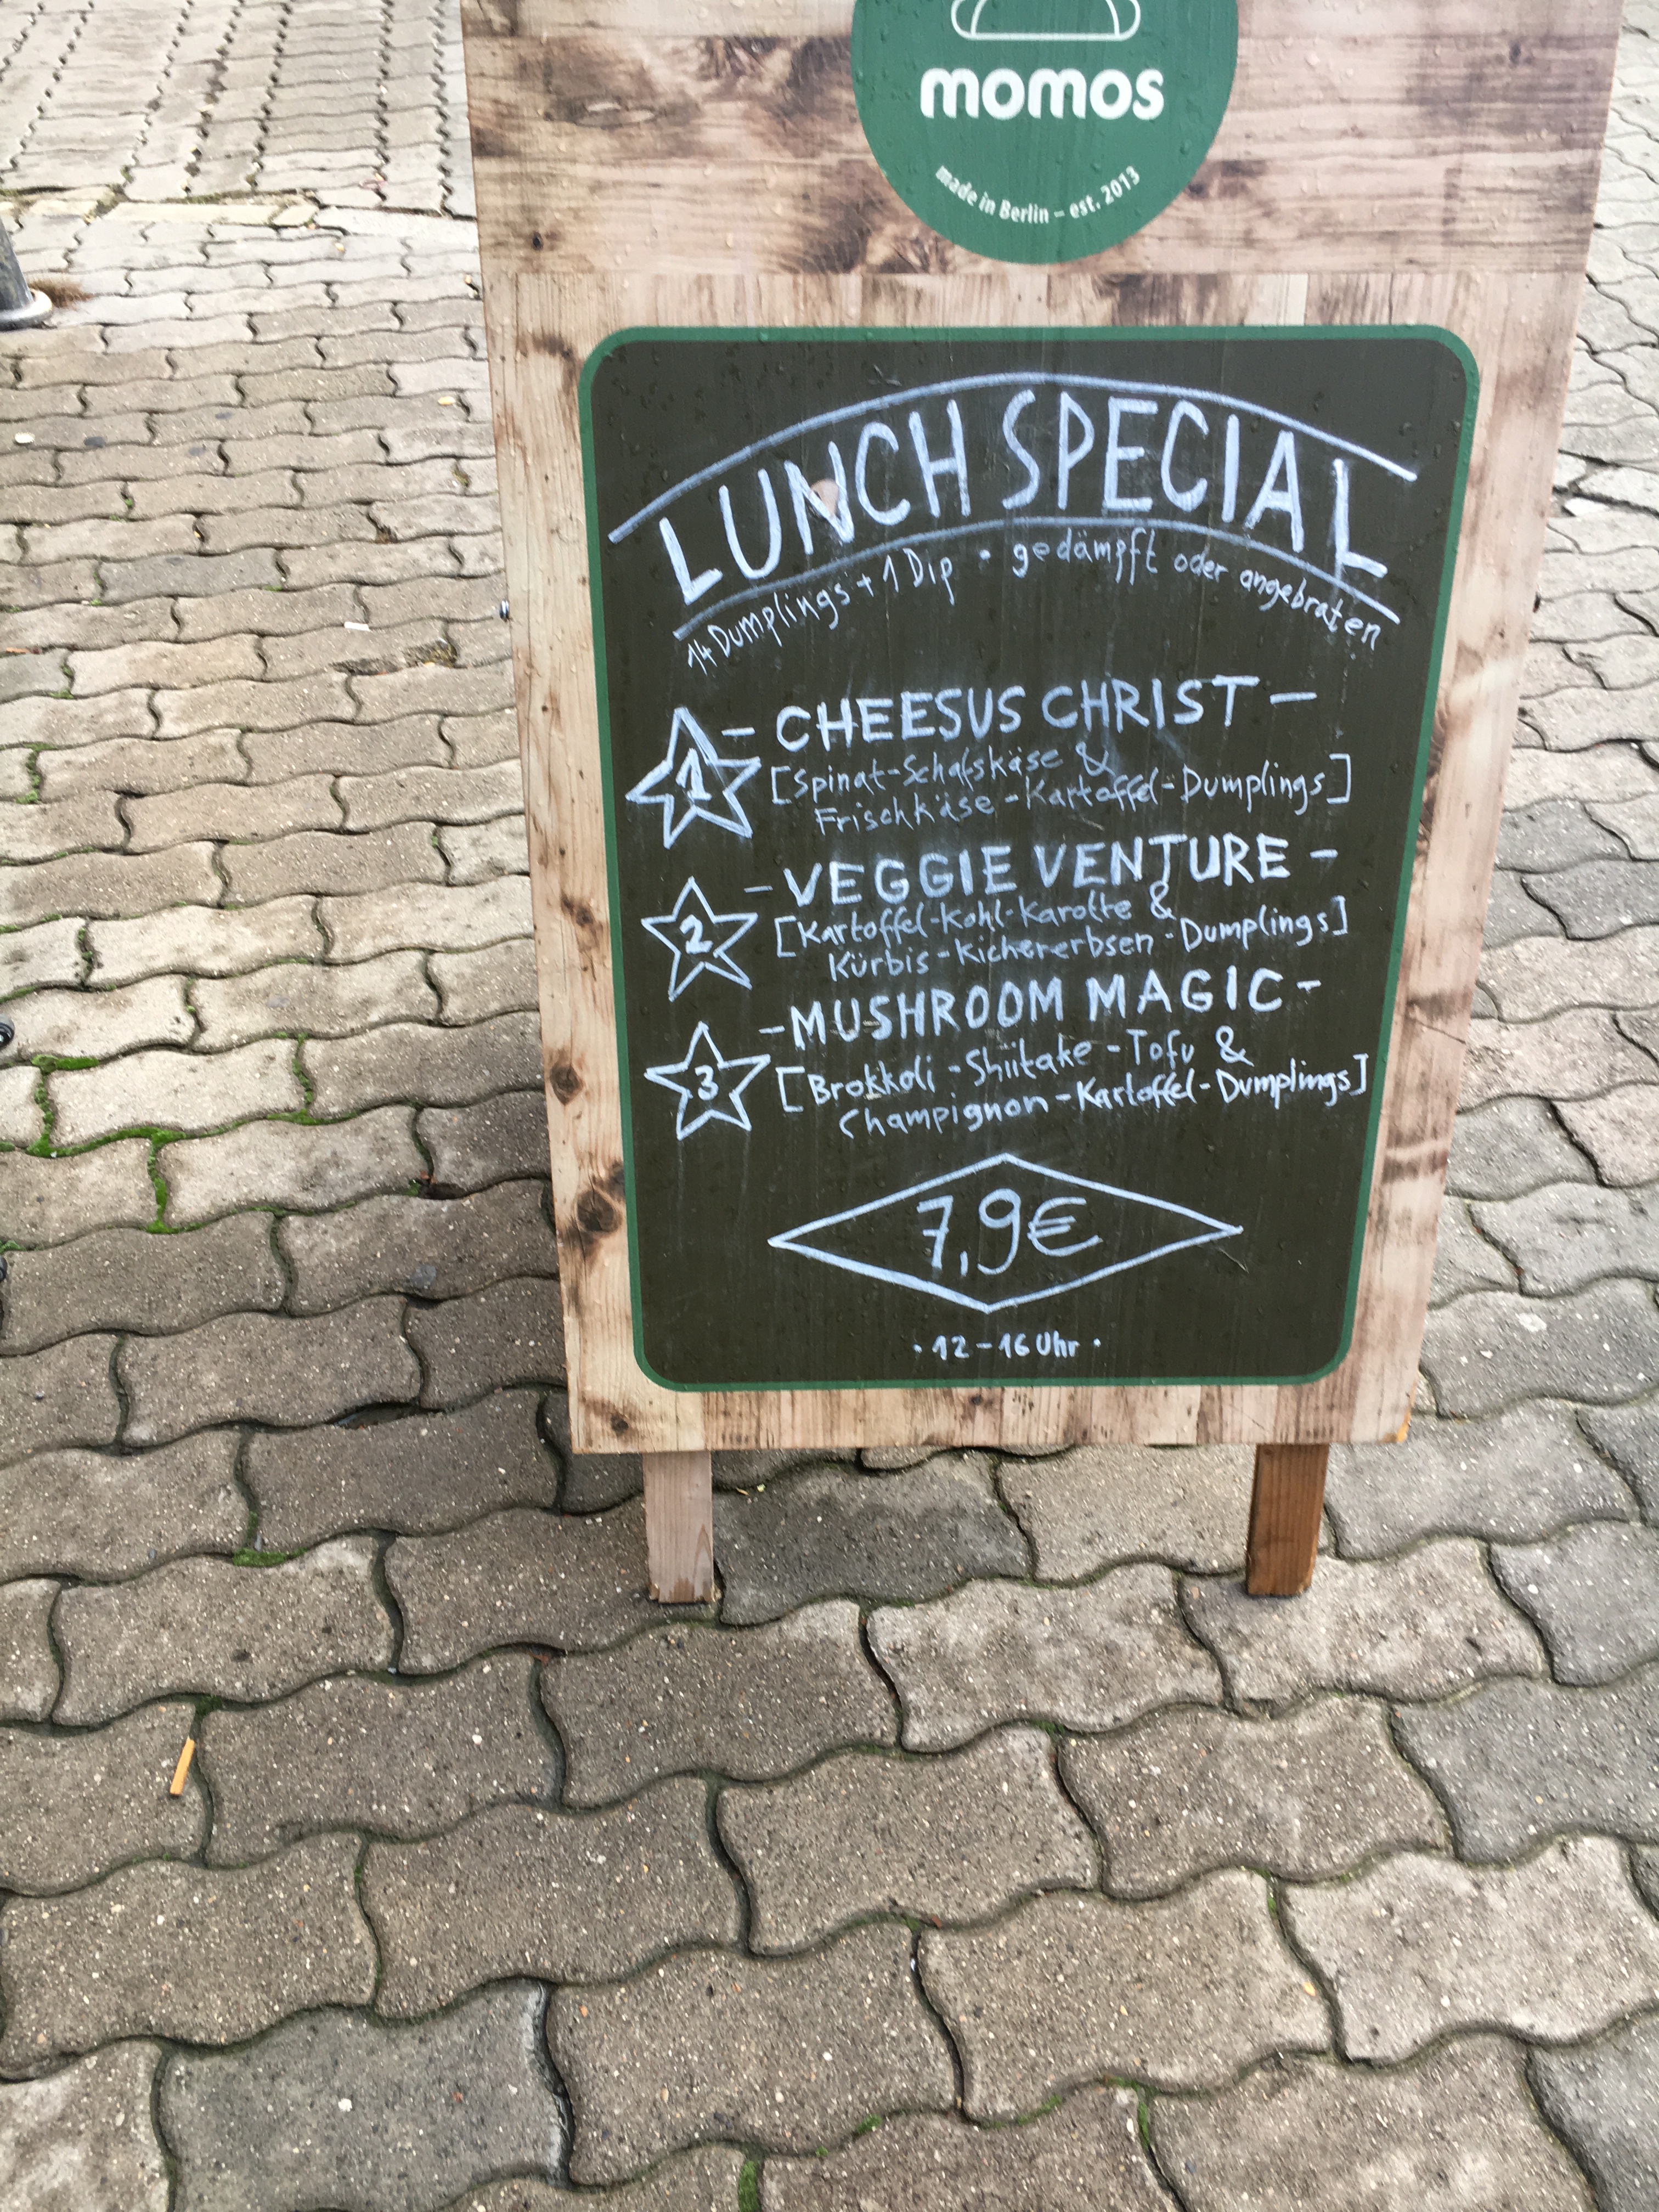 momos
made in Berlin – est. 2013
LUNCH SPECIAL
14 Dumplings + 1 Dip · gedämpft oder angebraten
1 - CHEESUS CHRIST -
[Spinat-Schafskäse &
Frischkäse-Kartoffel-Dumplings]
2 - VEGGIE VENTURE -
[Kartoffel-Kohl-Karotte &
Kürbis-Kichererbsen-Dumplings]
3 - MUSHROOM MAGIC -
[Brokkoli-Shiitake-Tofu &
Champignon-Kartoffel-Dumplings]
7,9€
· 12-16 Uhr ·